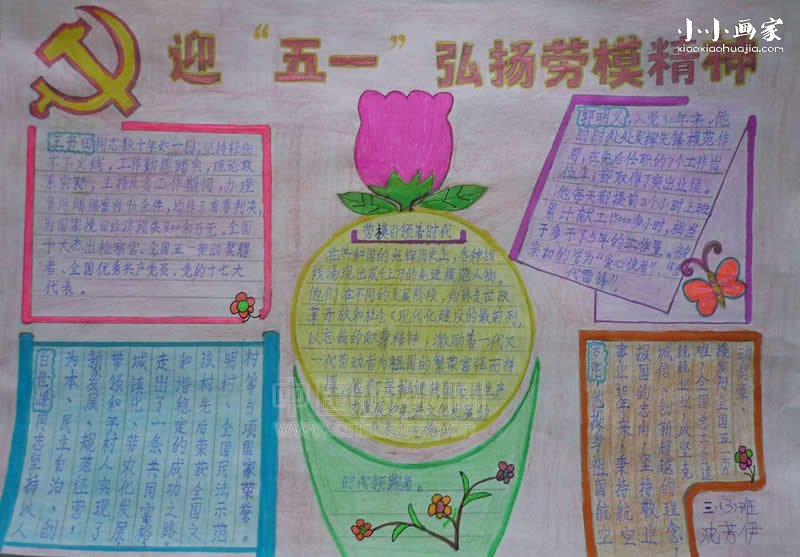 小小画家
xiaoxiaohuajia.com
迎“五一”弘扬劳模精神
王书田同志数十年如一日,坚持轻伤
不下火线,工作勤恳踏实,理论联
系实际,主持反贪工作期间,办理
贪污贿赂案件90余件,均作了有罪判决,
为国家挽回经济损失800多万元,全国
十大杰出检察官、全国五一劳动奖耀
者、全国优秀共产党员、党的十七大
代表。
劳模引领着时代
在共和国的光辉历史上,各种战
线涌现出成千上万的先进模范人物。
他们在不同的发展阶段,始终走在改
革开放和社会文现代化建设的最前列,
以忘我的献身精神,激励着一代又
一代劳动者为祖国的繁荣富强而拼
搏,他们是推进我国先进生产
力发展和先进文化发展的
时代领跑者。
郭明义,入党30年来,他
时时处处发挥先锋模范作
用,在先后任职的7个工作岗
位上,都取得了突出业绩。
他每天都提前2个小时上班
累计献工15000多小时,相当
于多干了5年的工作量。被
亲切的誉为“爱心使者”、“时
代雷锋”!
百世峰同志坚持以人
为本、民主自治、创
新发展、规范经营,
带领和平村人实现了
城镇化、非农化发展,
走出了一条共同富裕
和谐稳定的成功之路
该村先后荣获全国文
明村、全国民法示范
村等5项国家荣誉。
罗阳,他投身祖国航空
事业30年来,秉持航空
报国的志向,坚持敬业
诚信、创新超越的理念
兢兢业业,攻坚克
难,全国总工会追
授罗阳全国五一劳
动奖章。
三.(3)班
沈芳伊